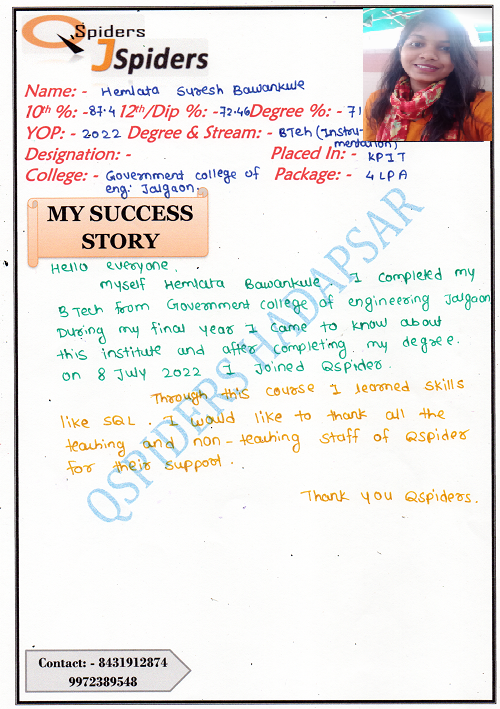 QSpiders
JSpiders
Name: - Hemlata Suresh Bawankule
10th %: -87.4 12th/Dip %: -72.46 Degree %: - 71
YOP: - 2022 Degree & Stream: - BTech (Instru-
mentation)
Designation: - Placed In: - KPIT
College: - Government college of Package: - 4 LPA
eng. Jalgaon.
MY SUCCESS
STORY
Hello everyone,
myself Hemlata Bawankule. I completed my
B Tech from Government college of engineering Jalgaon
During my final year I came to know about
this institute and after completing my degree.
on 8 July 2022 I Joined Qspider.
Through this course I learned skills
like SQL. I would like to thank all the
teaching and non-teaching staff of Qspider
for their support..
Thank you Qspiders.
QSPIDERS HADAPSAR
Contact: - 8431912874
9972389548